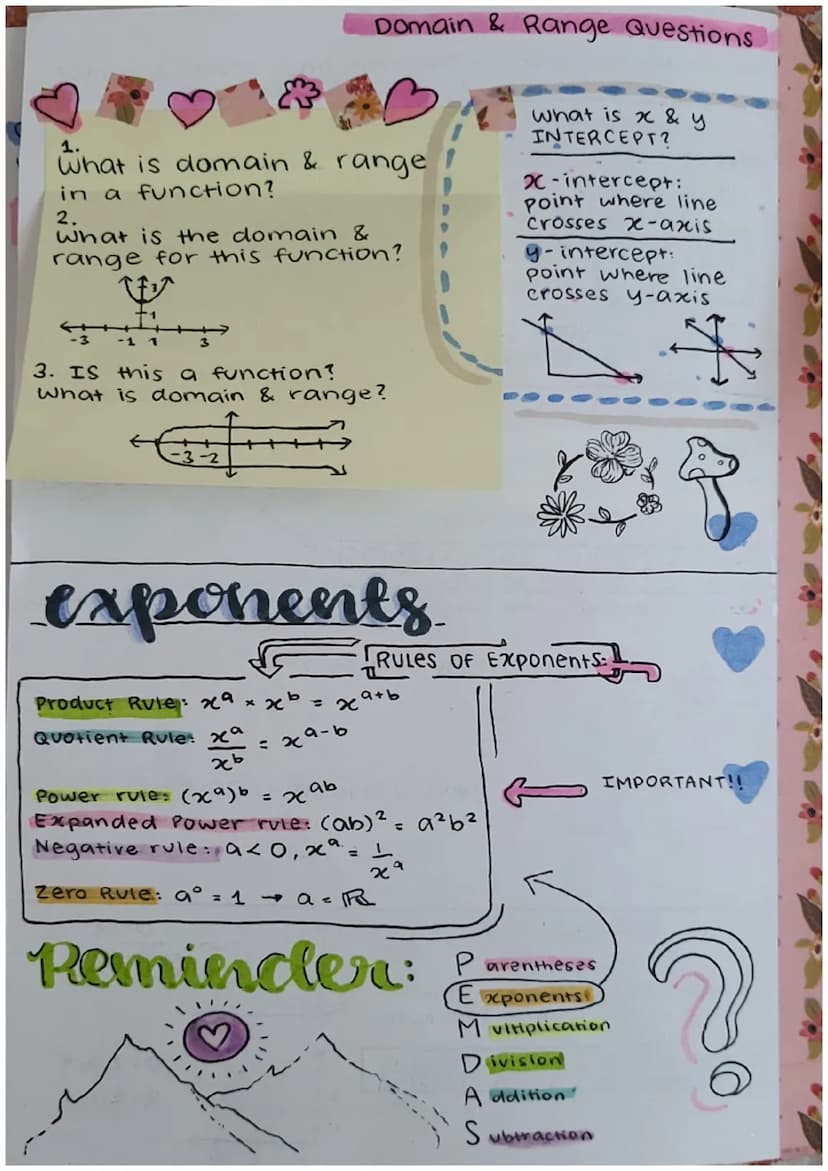 Domain & Range Questions
1.
What is domain & range
in a function?
2.
What is the domain &
range for this function?
3
1
-3 -1 1 3
3. Is this a function?
What is domain & range?
-3 -2
What is x & y
INTERCEPT?
x-intercept:
point where line
crosses x-axis
y-intercept:
point where line
crosses y-axis
exponents
Rules of Exponents:
Product Rule: xᵃ × xᵇ = xᵃ⁺ᵇ
Quotient Rule: xᵃ/xᵇ = xᵃ⁻ᵇ
Power rule: (xᵃ)ᵇ = xᵃᵇ
Expanded Power rule: (ab)² = a²b²
Negative rule: a < 0, xᵃ = 1/xᵃ
Zero Rule: a⁰ = 1 → a = ℝ
IMPORTANT!!
Reminder:
Parentheses
Exponents
Multiplication
Division
Addition
Subtraction
?